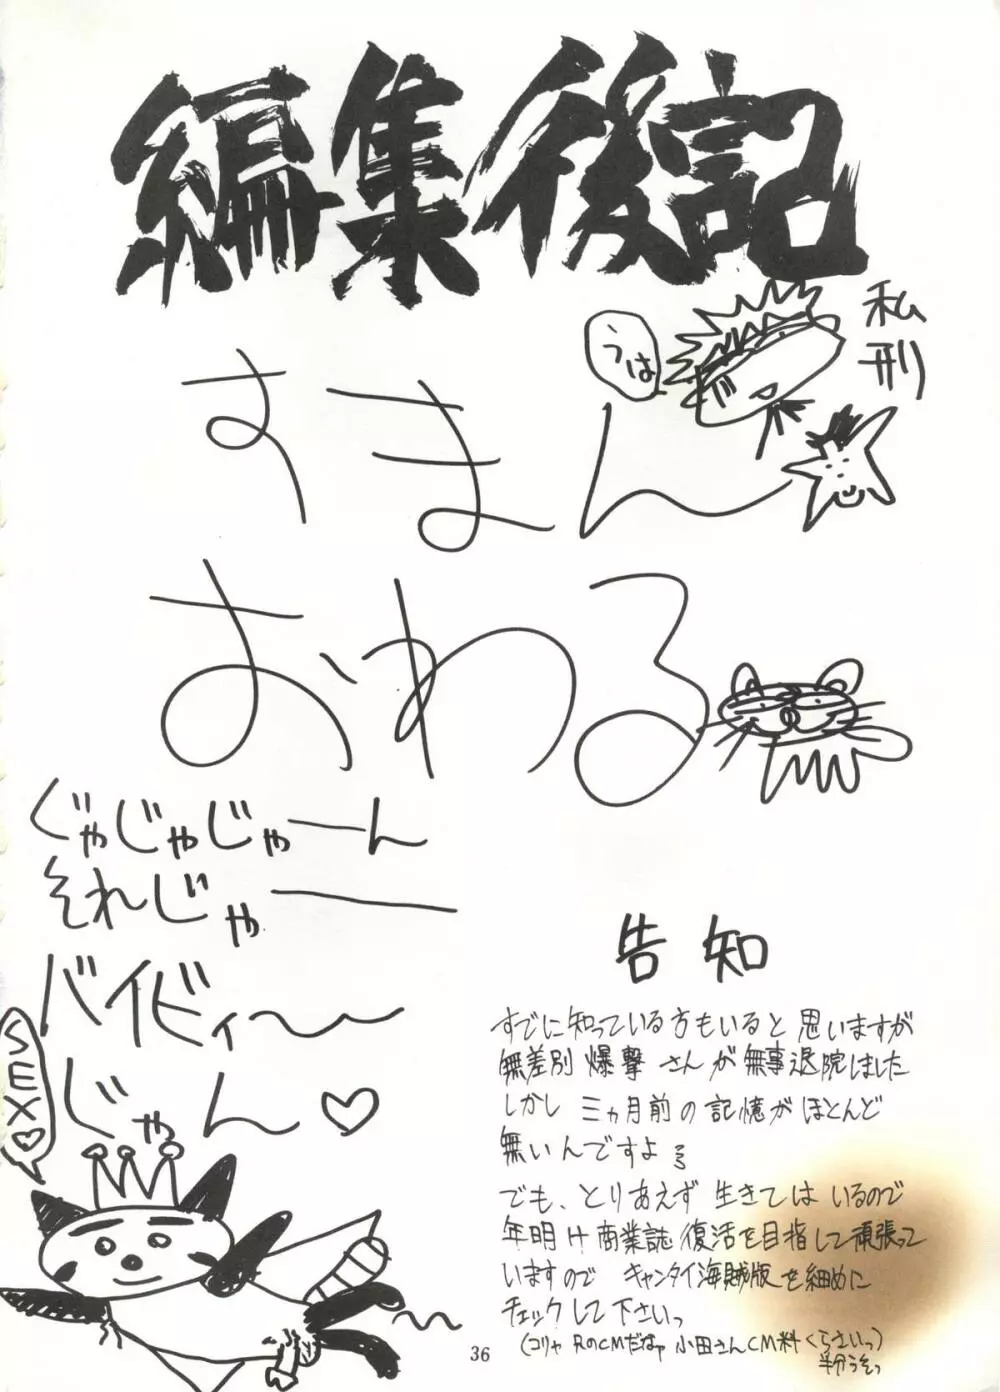 編集後記
私刑
うは
すまん
おわる
ぐゃじゃじゃーん
それじゃー
バイビィ〜
じゃん♡
SEX♡
告知
すでに知っている方もいると思いますが
無差別爆撃さんが無事退院しました
しかし三ヵ月前の記憶がほとんど
無いんですよ
でも、とりあえず生きてはいるので
年明け商業誌復活を目指して頑張って
いますので キャンタイ海賊版を細めに
チェックして下さいっ
(コリャ RのCMだなァ 小田さんCM料くらさいっ)
36